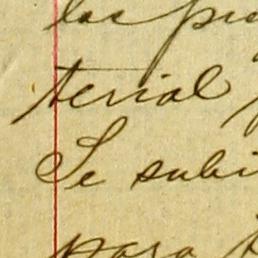 las
terial
Se subi
para